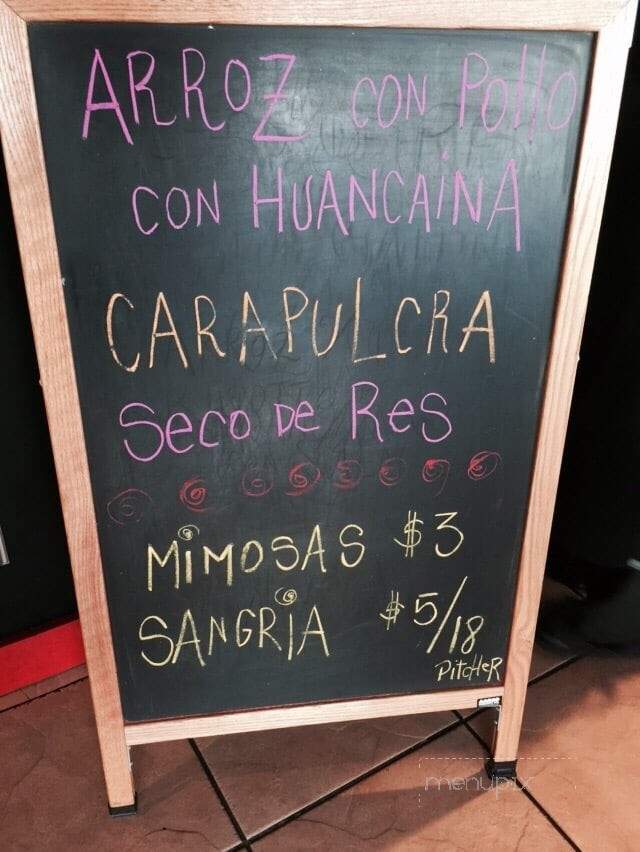 ARROZ CON Pollo
CON HUANCAiNA
CARAPULCRA
Seco DE Res
MiMOSAS $3
SANGRiA $5/18
PitcHeR
menupix